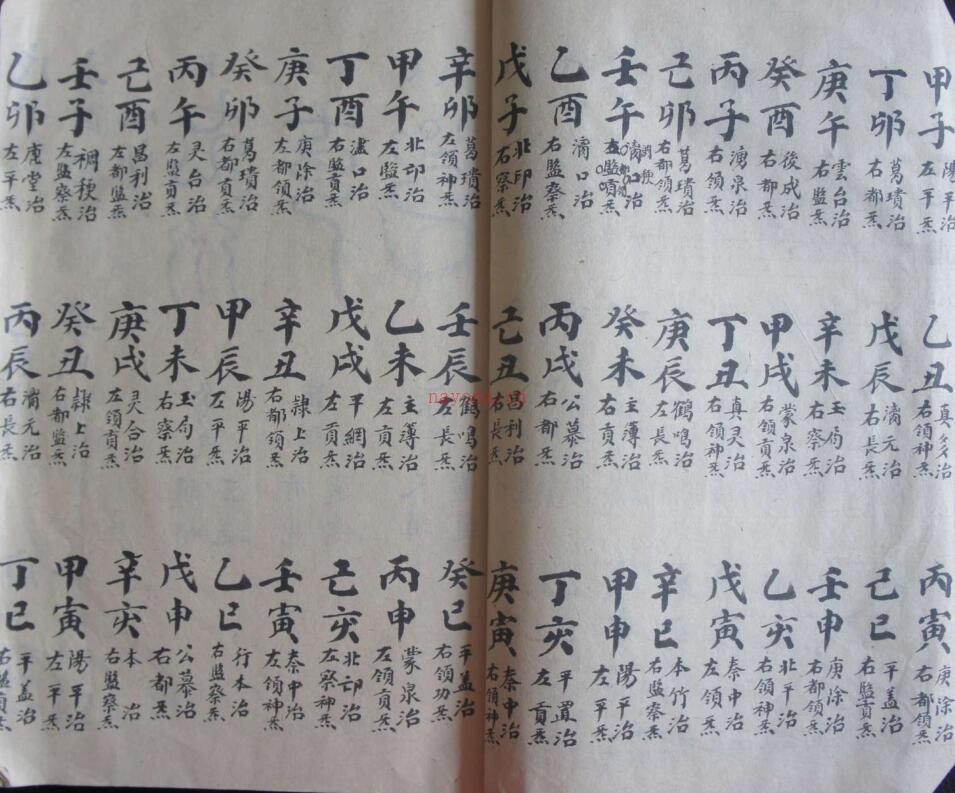 甲子 陽平治 左平炁
乙丑 真多治 右領神炁
丙寅 庚除治 右都領炁
丁卯 葛璝治 右都炁
戊辰 涌元治 右長炁
己巳 平蓋治 右監貢炁
庚午 雲台治 右監炁
辛未 玉局治 右察炁
壬申 庚除治 右都領炁
癸酉 後成治 右都炁
甲戌 蒙泉治 右領貢炁
乙亥 北平治 右領神炁
丙子 湧泉治 右領炁
丁丑 真灵治 右領神炁
戊寅 秦中治 左領炁
己卯 葛璝治 右都領炁
庚辰 鶴鳴治 左長炁
辛巳 本竹治 右監察炁
壬午 治 炁
癸未 主簿治 右貢炁
甲申 陽平治 左平炁
乙酉 涌口治 右監察炁
丙戌 公慕治 右都炁
丁亥 平置治 左貢炁
戊子 北邙治 右察炁
己丑 昌利治 右長炁
庚寅 秦中治 右領神炁
辛卯 葛璝治 左領神炁
壬辰 鶴鳴治 左長炁
癸巳 平蓋治 右領功炁
甲午 北邙治 左監炁
乙未 主簿治 左貢炁
丙申 蒙泉治 左領貢炁
丁酉 口治 右監貢炁
戊戌 平網治 左貢炁
己亥 北邙治 左察神炁
庚子 庚除治 左都領炁
辛丑 隸上治 右都領炁
壬寅 秦中治 左領神炁
癸卯 葛璝治 右都貢炁
甲辰 湯平治 左平炁
乙巳 行本治 右監察炁
丙午 灵台治 左監貢炁
丁未 玉局治 右察炁
戊申 公慕治 右都炁
己酉 昌利治 左都監炁
庚戌 灵合治 左領貢炁
辛亥 本治 右監察炁
壬子 稠稉治 左監察炁
癸丑 隸上治 右都監炁
甲寅 陽平治 左平炁
乙卯 堂治 左平炁
丙辰 涌元治 右長炁
丁巳 平盖治 右監貢炁